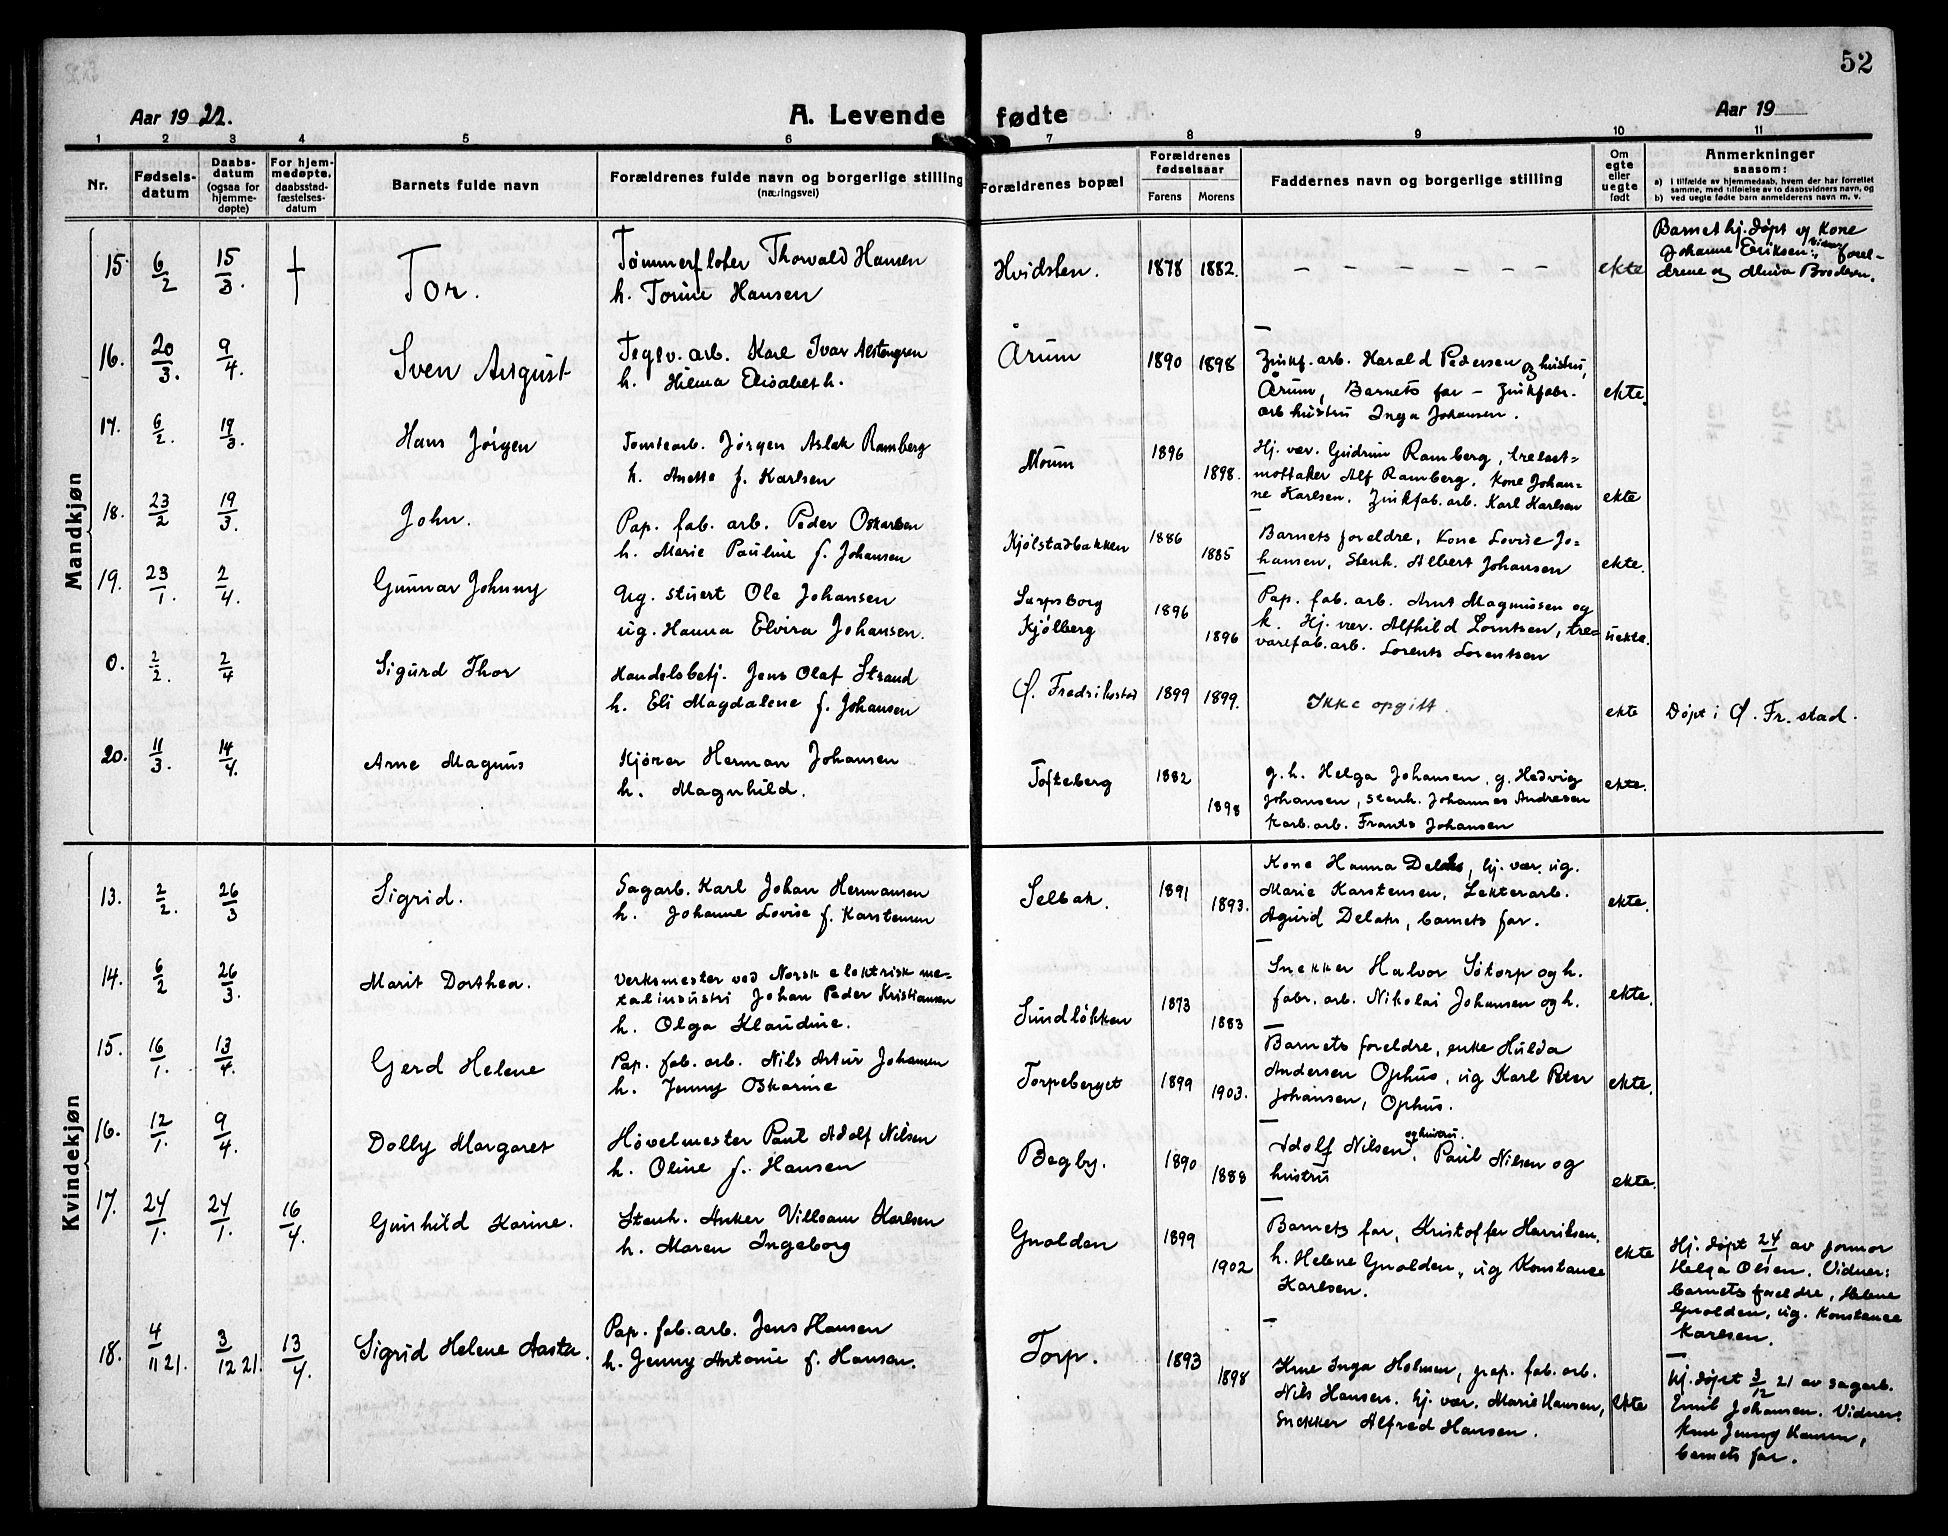 52
Aar 1922.
A. Levende fødte
Aar 19
1 2 3 4 5 6 7 8 9 10 11
Nr.
Fødsels-
datum
Daabs-
datum
(ogsaa for
hjemme-
døpte)
For hjem-
medøpte,
daabsstad-
fæstelses-
datum
Barnets fulde navn
Forældrenes fulde navn og borgerlige stilling
(næringsvei)
Forældrenes bopæl
Forældrenes
fødselsaar
Farens Morens
Faddernes navn og borgerlige stilling
Om
egte
eller
uegte
født
Anmerkninger
saasom:
a) i tilfælde av hjemmedaab, hvem der har forrettet
samme, med tilføielse av to daabsvidners navn, og
b) ved uegte fødte barn anmelderens navn m. v.
Mandkjøn
15. 6/2 15/3. † Tor.
Tømmerfløter Thorvald Hansen
h. Torine Hansen
Hvidsten. 1878 1882. – – – – – – – ekte
Barnet hj. døpt og Kone
Johanne Eriksen: vidner forel-
drene og
16. 20/3. 9/4. Sven August
Teglv. arb. Karl Ivar Alstengren
h. Hilma Elisabeth.
Årum 1890 1898
Zinkf. arb. Harald Pedersen og hustru,
Årum, Barnets far – Zinkfabr.
arb hustru Inga Johansen.
ekte.
17. 6/2. 19/3. Hans Jørgen
Tomtearb. Jørgen Aslak Ramberg
h. Anette f. Karlsen
Moum 1896 1898.
Hj. vær. Gudrun Ramberg, trelast=
mottaker Alf Ramberg, Kone Johan=
ne Karlsen, Zinkfab. arb. Karl Karlsen
ekte
18. 23/2 19/3. John.
Pap. fab. arb. Peder Oskarsen
h. Marie Pauline f. Johansen
Kjølstadbakken 1886 1885
Barnets foreldre, Kone Lovise Jo=
hansen, Stenh. Albert Johansen
ekte.
19. 23/1. 2/4. Gunnar Johnny
Ug. stuert Ole Johansen
ug. Hanna Elvira Johansen.
Sarpsborg
Kjølberg
1896 1896
Pap. fab. arb. Arnt Magnussen og
h. Hj. vær. Alfhild Lorntsen, tre=
varefab. arb. Lorents Lorentsen
uekte.
0. 2/2. 2/4 Sigurd Thor
Handelsbetj. Jens Olaf Strand
h. Eli Magdalene f. Johansen
Ø. Fredrikstad 1899 1899.
Ikke opgitt.
ekte Døpt i Ø. Fr. stad.
20. 11/3. 14/4. Arne Magnus
Kjører Herman Johansen
h. Magnhild.
Tofteberg 1882 1898
g. h. Helga Johansen, g. Hedvig
Johansen, stenh. Johannes Andresen
Karb. arb. Frants Johansen
ekte.
Kvindekjøn
13. 2/2. 26/3 Sigrid.
Sagarb. Karl Johan Hermansen
h. Johanne Lovise f. Karstensen
Selbak. 1891 1893.
Kone Hanna, hj. vær. ug.
Marie Karstensen, Lekterarb.
barnets far.
ekte.
14. 6/2 26/3. Marit Dorthea.
Verksmester ved Norsk elektrisk me-
talindustri Johan Peder Kristiansen
h. Olga Klaudine.
Sundløkken 1873 1883
Snekker Halvor Søtorp og h.
fabr. arb. Nikolai Johansen og h.
ekte.
15. 16/1. 13/4. Gerd Helene
Pap. fab. arb. Nils Artur Johansen
h. Jenny Oskarine
Torpeberget 1899 1903.
Barnets foreldre, enke Hulda
Andersen Ophus, ug Karl Peter
Johansen, Ophus.
ekte.
16. 12/1. 9/4. Dolly Margaret
Høvelmester Paul Adolf Nilsen
h. Oline f. Hansen
Begby. 1890 1888
Adolf Nilsen og hustru. Paul Nilsen og
hustru
ekte.
17. 24/1. 24/1. 16/4. Gunhild Karine.
Stenh. Anker Villsam Karlsen
h. Maren Ingeborg
Gnolden 1899 1902
Barnets far, Kristoffer Henriksen,
h. Helene Gnolden, ug Konstance
Karlsen.
ekte
Hj. døpt 24/1 av jormor
Helga Olsen. Vidner:
barnets foreldre, Helene
Gnolden, ug. Konstance
Karlsen.
18. 4/11 21. 3/12 21. 13/4. Sigrid Helene Aasta.
Pap. fab. arb. Jens Hansen
h. Jenny Antonie f. Hansen.
Torp. 1893 1898
Kone Inga Holmen, pap. fab. arb.
Nils Hansen. hj. vær. Marie Hansen,
Snekker Alfred Hansen.
ekte
Hj. døpt 3/12 21 av sagarb.
Emil Johansen. Vidner:
Kone Jenny Hansen,
barnets far.